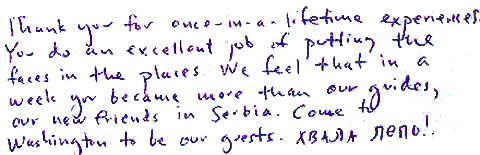 Thank you for once-in-a-lifetime experiences.
You do an excellent job of putting the
faces in the places. We feel that in a
week you became more than our guides,
our new friends in Serbia. Come to
Washington to be our guests. ХВАЛА ЛЕПО!